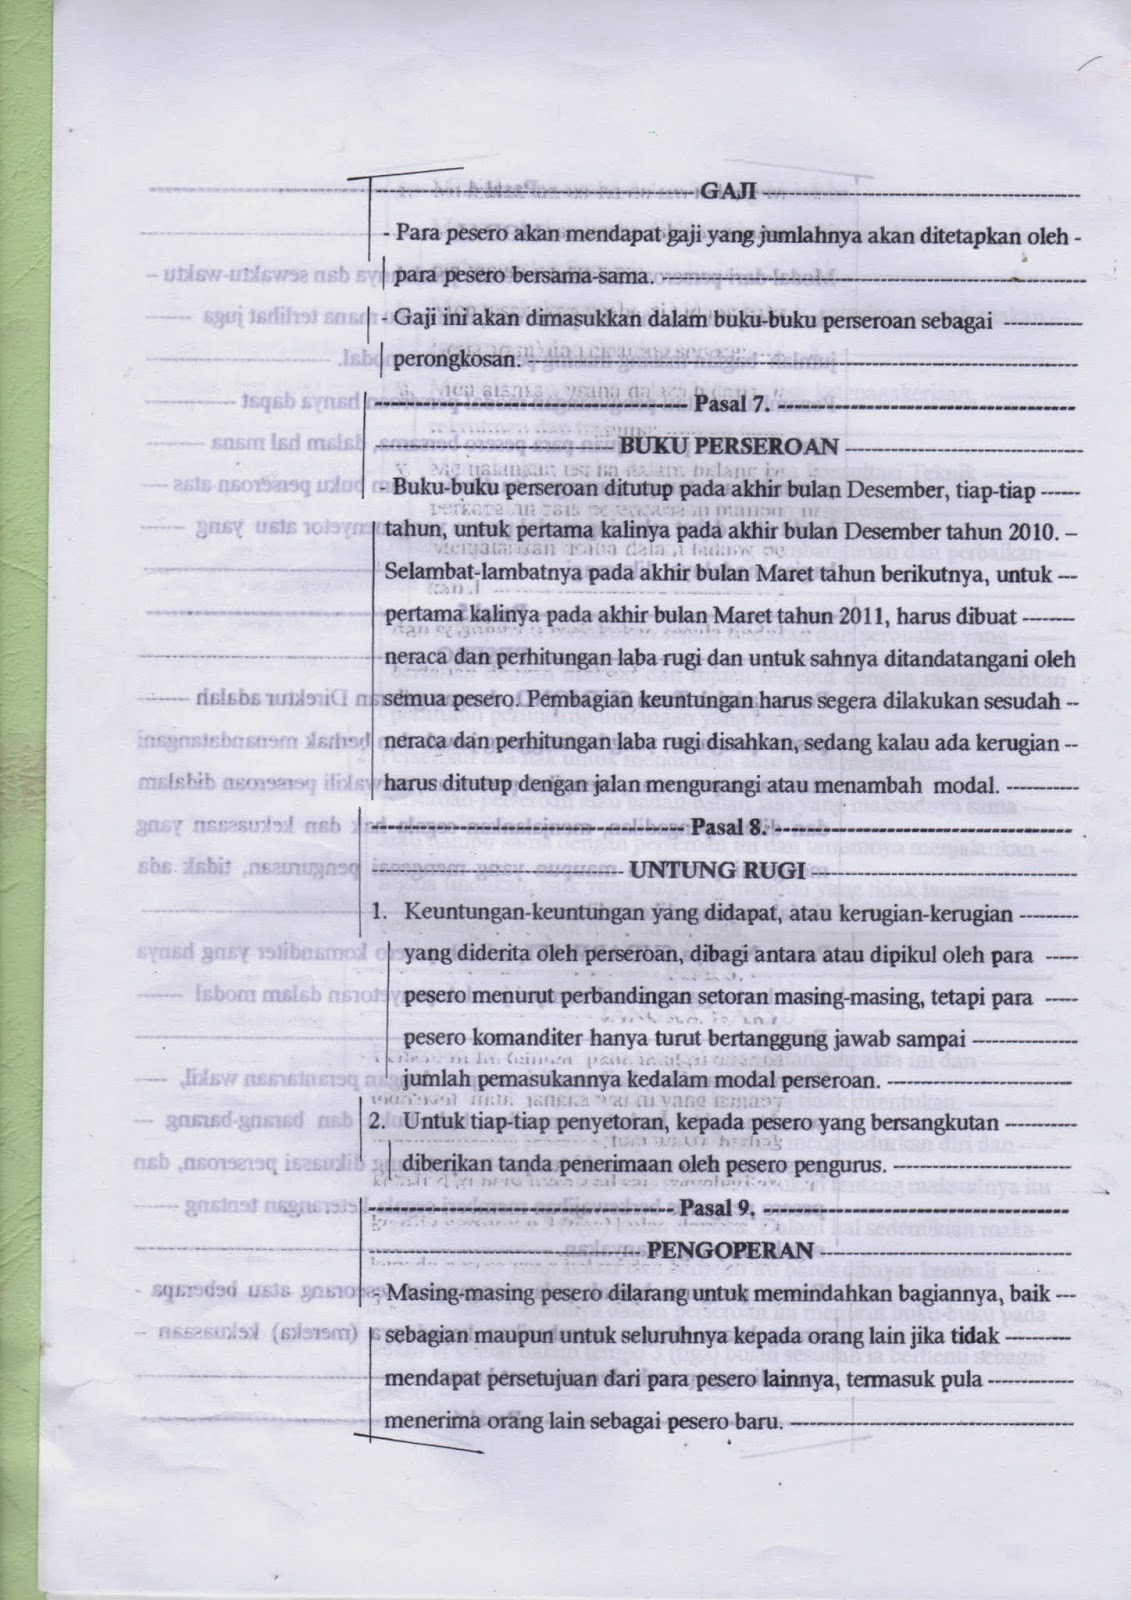 GAJI
- Para pesero akan mendapat gaji yang jumlahnya akan ditetapkan oleh -
para pesero bersama-sama.
- Gaji ini akan dimasukkan dalam buku-buku perseroan sebagai
perongkosan.
Pasal 7.
BUKU PERSEROAN
- Buku-buku perseroan ditutup pada akhir bulan Desember, tiap-tiap
tahun, untuk pertama kalinya pada akhir bulan Desember tahun 2010. -
Selambat-lambatnya pada akhir bulan Maret tahun berikutnya, untuk ---
pertama kalinya pada akhir bulan Maret tahun 2011, harus dibuat
neraca dan perhitungan laba rugi dan untuk sahnya ditandatangani oleh
semua pesero. Pembagian keuntungan harus segera dilakukan sesudah --
neraca dan perhitungan laba rugi disahkan, sedang kalau ada kerugian --
harus ditutup dengan jalan mengurangi atau menambah modal.
Pasal 8.
UNTUNG RUGI
1. Keuntungan-keuntungan yang didapat, atau kerugian-kerugian
yang diderita oleh perseroan, dibagi antara atau dipikul oleh para
pesero menurut perbandingan setoran masing-masing, tetapi para
pesero komanditer hanya turut bertanggung jawab sampai
jumlah pemasukannya kedalam modal perseroan.
2. Untuk tiap-tiap penyetoran, kepada pesero yang bersangkutan
diberikan tanda penerimaan oleh pesero pengurus.
Pasal 9.
PENGOPERAN
- Masing-masing pesero dilarang untuk memindahkan bagiannya, baik ---
sebagian maupun untuk seluruhnya kepada orang lain jika tidak
mendapat persetujuan dari para pesero lainnya, termasuk pula
menerima orang lain sebagai pesero baru.